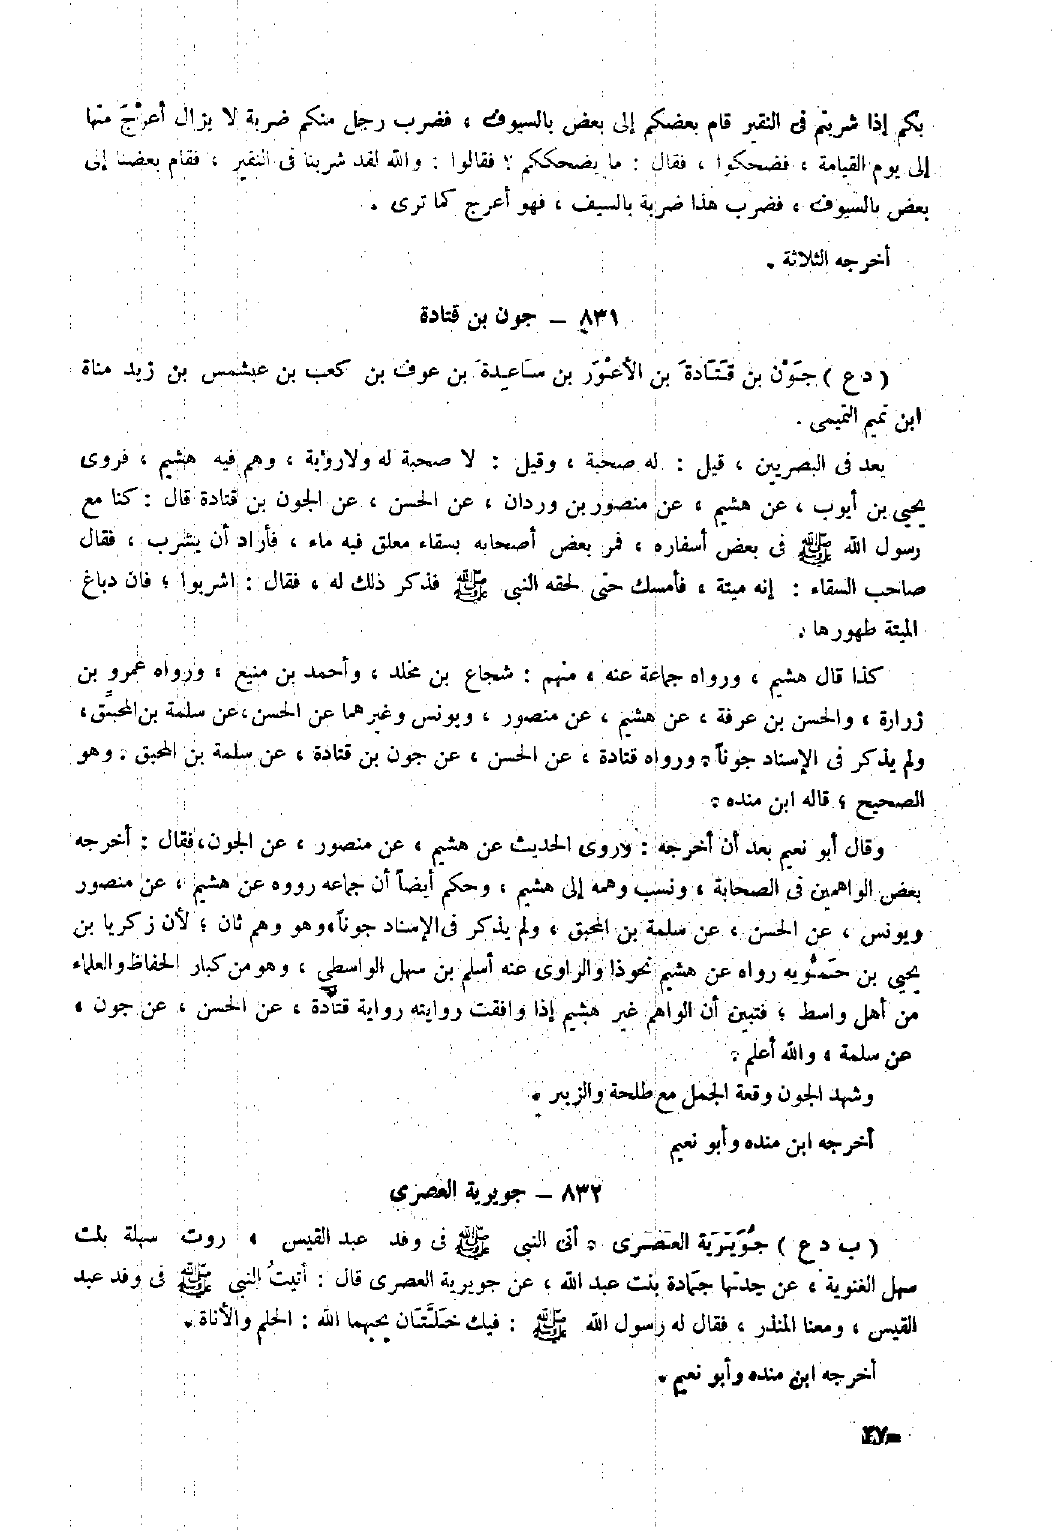 بكم إذا شربتم فى النقير قام بعضكم إلى بعض بالسيوف ، فضرب رجل منكم ضربة لا يزال أعرَجَ منها
إلى يوم القيامة ، فضحكوا ، فقال : ما يضحككم ؟ فقالوا : والله لقد شربنا فى النقير ، فقام بعضنا إلى
بعض بالسيوف ، فضرب هذا ضربة بالسيف ، فهو أعرج كما ترى .
أخرجه الثلاثة .
٨٣١ – جون بن قتادة
( د ع ) جَوْن بن قَتَادةَ بن الأعْوَر بن سَاعِدةَ بن عوف بن كعب بن عبشمس بن زيد مناة
ابن تميم التميمى .
يعد فى البصريين ، قيل : له صحبة ، وقيل : لا صحبة له ولا رؤية ، وهم فيه هشيم ، فروى
يحيى بن أيوب ، عن هشيم ، عن منصور بن وردان ، عن الحسن ، عن الجون بن قتادة قال : كنا مع
رسول الله ﷺ فى بعض أسفاره ، فمر بعض أصحابه بسقاء معلق فيه ماء ، فأراد أن يشرب ، فقال
صاحب السقاء : إنه ميتة ، فأمسك حتى لحقه النبى ﷺ فذكر ذلك له ، فقال : اشربوا ؛ فان دباغ
الميتة طهورها .
كذا قال هشيم ، ورواه جماعة عنه ، منهم : شجاع بن مخلد ، وأحمد بن منيع ، ورواه عمرو بن
زرارة ، والحسن بن عرفة ، عن هشيم ، عن منصور ، ويونس وغيرهما عن الحسن، عن سلمة بن المحبِّق ،
ولم يذكر فى الإسناد جوناً . ورواه قتادة ، عن الحسن ، عن جون بن قتادة ، عن سلمة بن المحبق . وهو
الصحيح ؛ قاله ابن منده .
وقال أبو نعيم بعد أن أخرجه : وروى الحديث عن هشيم ، عن منصور ، عن الجون، فقال : أخرجه
بعض الواهمين فى الصحابة ، ونسب وهمه إلى هشيم ، وحكم أيضاً أن جماعه رووه عن هشيم ، عن منصور
ويونس ، عن الحسن ، عن سلمة بن المحبق ، ولم يذكر فى الإسناد جوناً ، وهو وهم ثان ؛ لأن زكريا بن
يحيى بن حَمُّويه رواه عن هشيم نحوذا والراوى عنه أسلم بن سهل الواسطى ، وهو من كبار الحفاظ والعلماء
من أهل واسط ؛ فتبين أن الواهم غير هشيم إذا وافقت روايته رواية قتادة ، عن الحسن ، عن جون ،
عن سلمة ، والله أعلم .
وشهد الجون وقعة الجمل مع طلحة والزبير .
أخرجه ابن منده وأبو نعيم
٨٣٢ – جويرية العصرى
( ب د ع ) جُوَيْرَية العَصَرى . أتى النبى ﷺ فى وفد عبد القيس ، روت سهلة بنت
سهل الغنوية ، عن جدتها جمّادة بنت عبد الله ، عن جويرية العصرى قال : أتيتُ النبى ﷺ فى وفد عبد
القيس ، ومعنا المنذر ، فقال له رسول الله ﷺ : فيك خَلَّتَان يحبهما الله : الحلم والأناة .
أخرجه ابن منده وأبو نعيم .